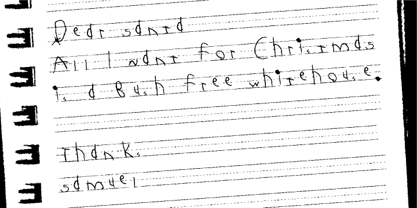 Dear santa
All I want for Christmas
is a Bush free whitehouse.
Thanks
samuel